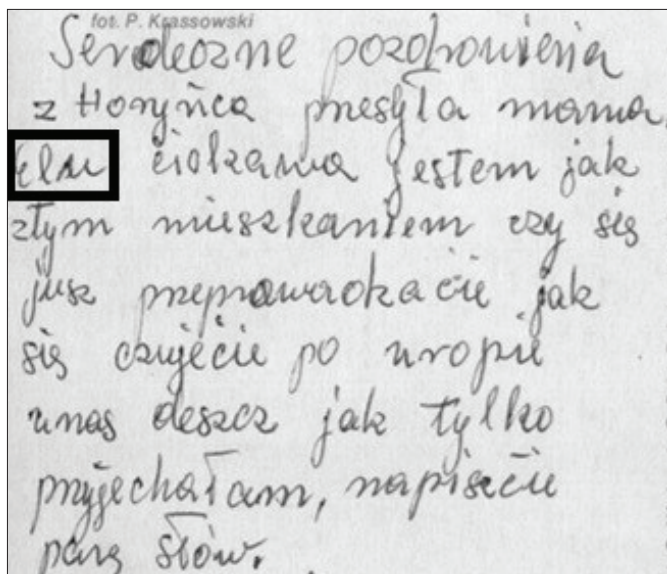 fot. P. Krassowski
Serdeczne pozdrowienia
z Horyńca przesyła mama,
Elu ciekawa jestem jak
ztym mieszkaniem czy się
jusz przeprowadzacie jak
się czujecie po uropie
unas deszcz jak tylko
przyjechałam, napiszcie
parę słów.